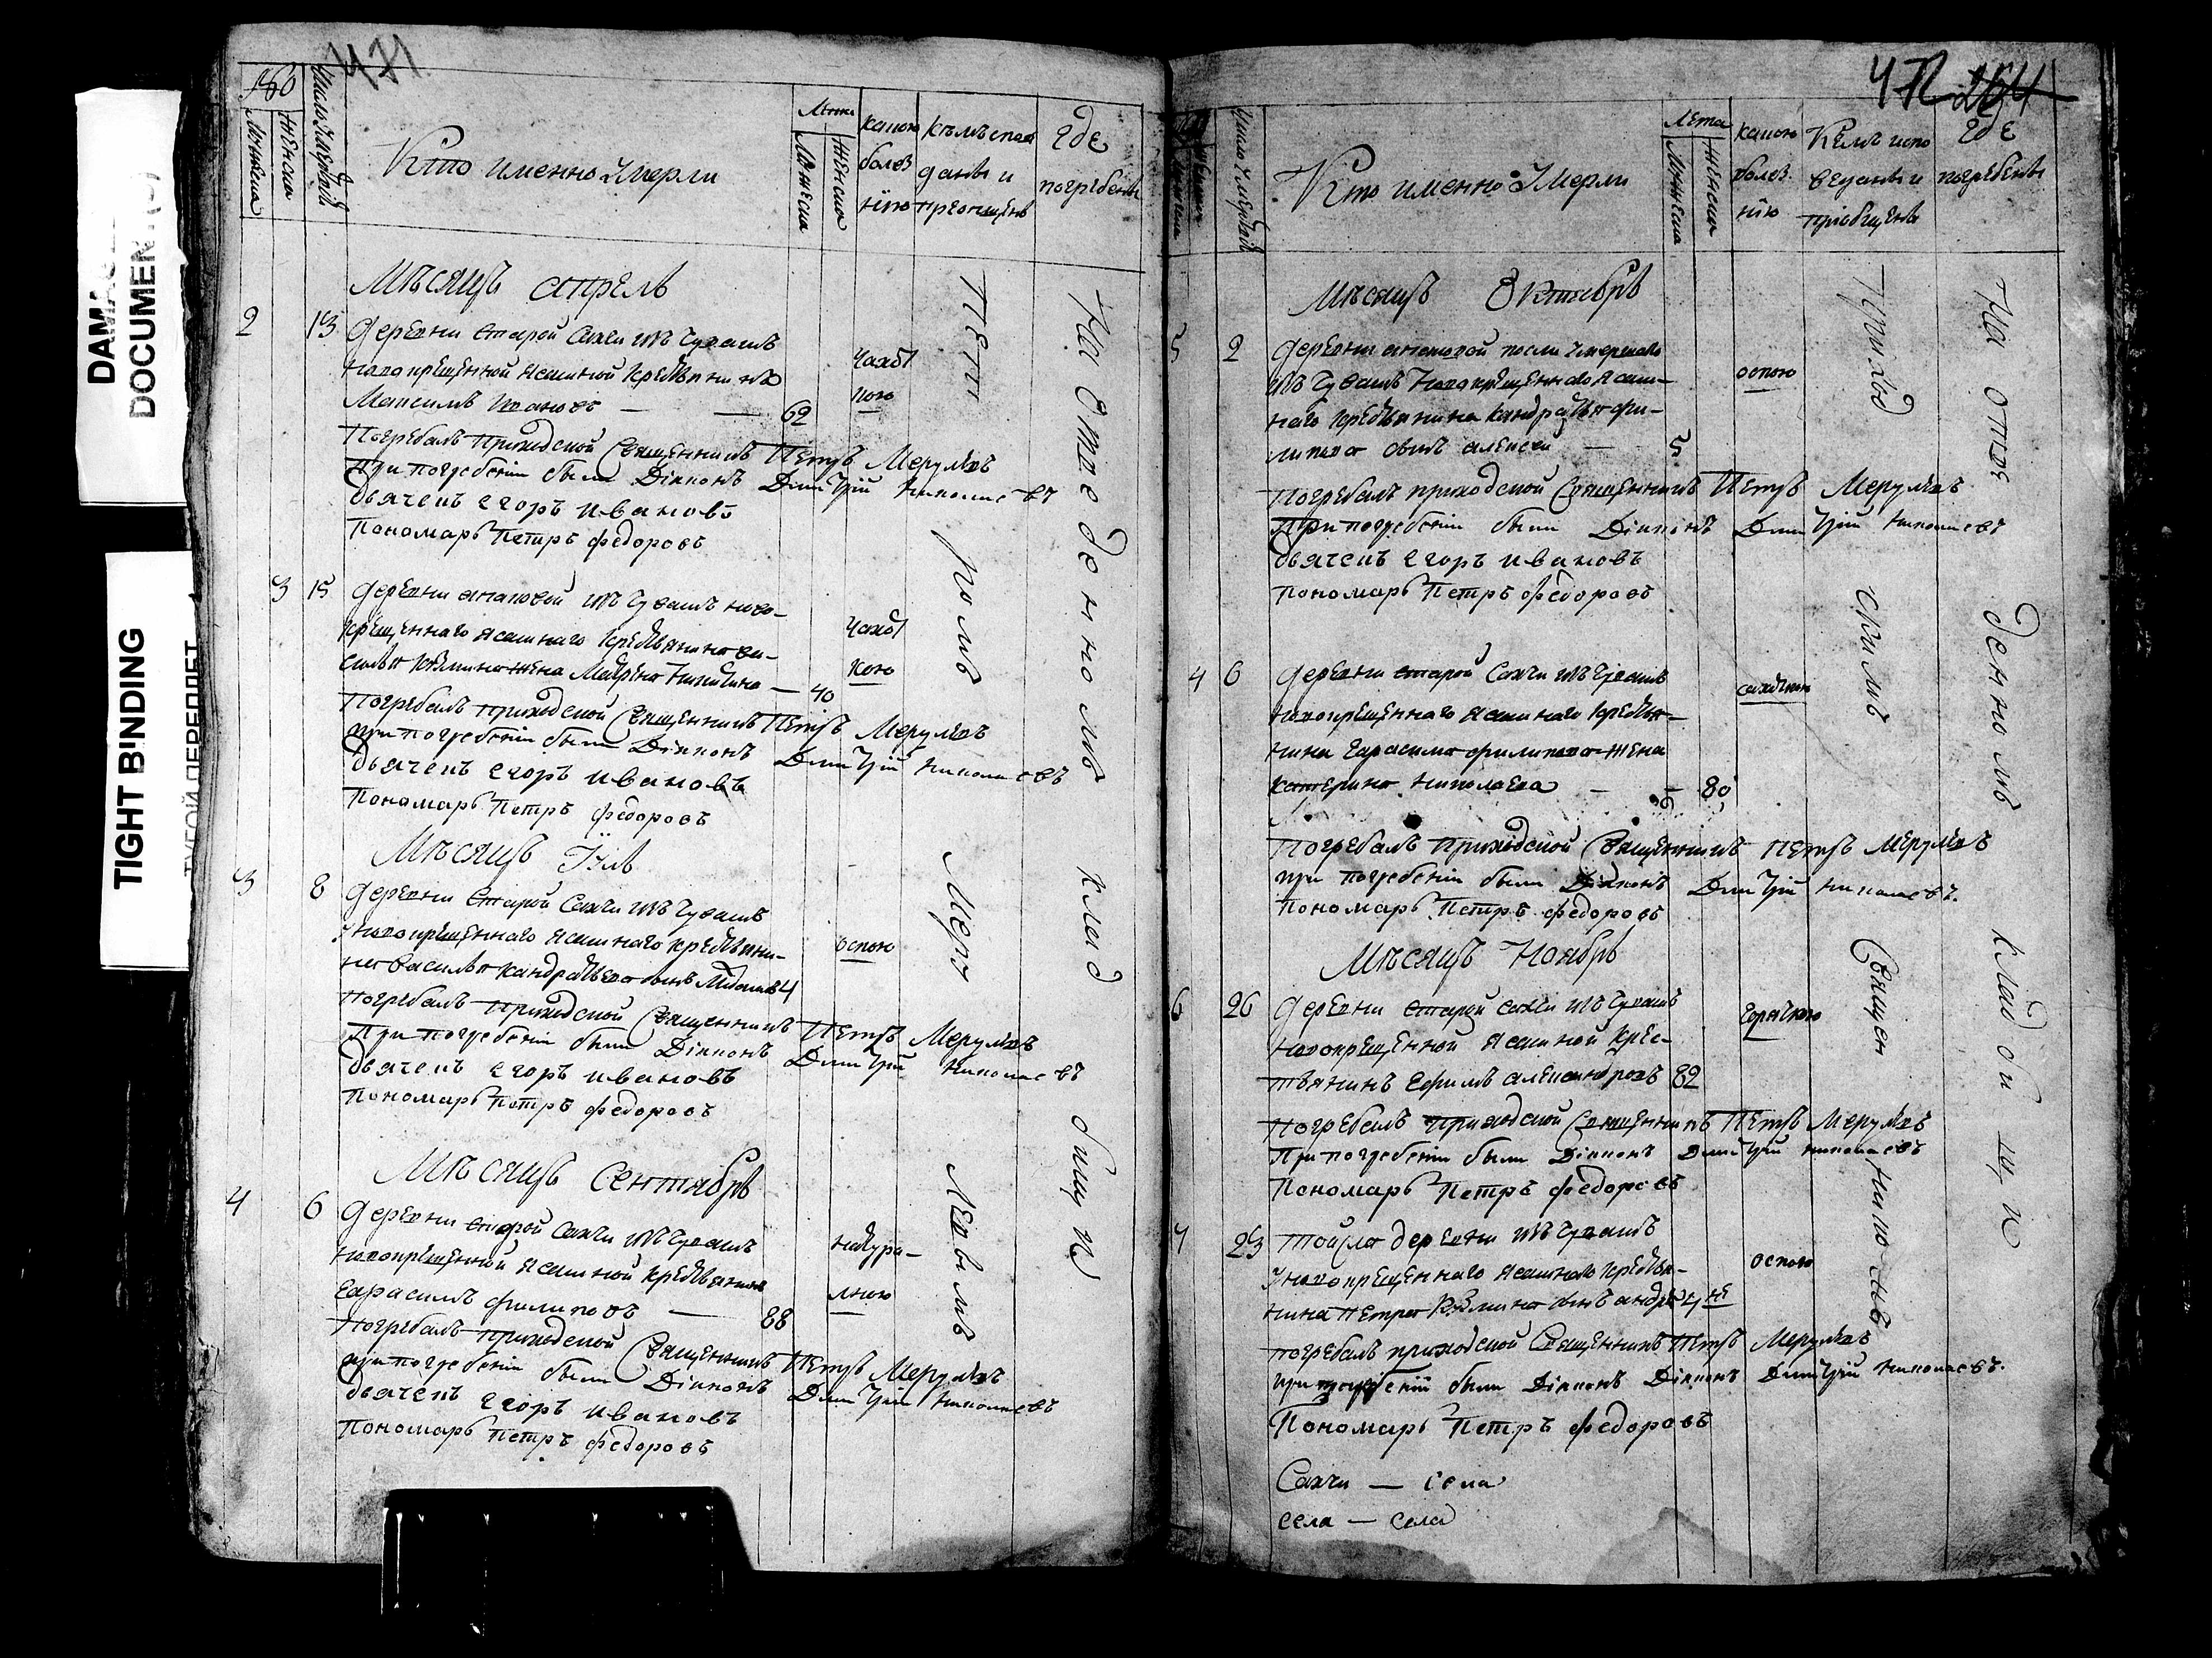 DAMA
DOCUMEN (S)
TIGHT BINDING
ТУГОЙ ПЕРЕПЛЕТ
471
Число Умерший
Мужеска
Женска
Кто именно Умерли
Лета
Мужеска
Женска
какою
болез
нїю
где
погребены
Мѣсяцъ апрель
2 13 деревни старой Сахчи изъ Чувашъ
новокрещенной ясашной крестьянинъ
Максимъ Ивановъ — — 62
Чахот
кою
Погребалъ приходской Священникъ Петръ
При погребеніи были Дiаконъ Димитрій Николаевъ
Дьячекъ Егоръ Ивановъ
Пономарь Петръ Федоровъ
3 15 деревни изъ Чувашъ ново-
крещеннаго ясашнаго крестьянина ва-
жена Никитина — 40
Чахот
кою
Погребалъ приходской Священникъ Петръ
при погребеніи были Дiаконъ Димитрій Николаевъ
Дьячекъ Егоръ Ивановъ
Пономарь Петръ Федоровъ
Мѣсяцъ Іюль
3 8 деревни Старой Сахчи изъ Чувашъ
Новокрещеннаго ясашнаго крестьяни-
на Василья Кандратьева сынъ 4
оспою
Погребалъ приходской Священникъ Петръ
При погребеніи были Дiаконъ Димитрій Николаевъ
Дьячекъ Егоръ Ивановъ
Пономарь Петръ Федоровъ
Мѣсяцъ Сентябрь
4 6 деревни старой Сахчи изъ Чувашъ
новокрещенной ясашной крестьянинъ
Герасимъ филиповъ — 88
Погребалъ приходской Священникъ Петръ
при погребеніи были Дiаконъ Димитрій Николаевъ
Дьячекъ Егоръ Ивановъ
Пономарь Петръ Федоровъ
Петромъ
На отведенномъ кладбищи
472 264
Число Умерший
Кто именно Умерли
Лета
Мужеска
Женска
какою
болез
нїю
Кемъ испо
веданы и
приобщены
где
погребены
Мѣсяцъ Октябрь
5 2 деревни после Умершаго
изъ Чувашъ Новокрещеннаго ясаш-
наго крестьянина Кандратья фи-
липова сынъ алексей — 5
оспою
Погребалъ приходской Священникъ Петръ
При погребеніи были Дiаконъ Димитрій Николаевъ
Дьячекъ Егоръ Ивановъ
Пономарь Петръ Федоровъ
4 6 деревни старой Сахчи изъ Чувашъ
новокрещеннаго ясашнаго крестья-
нина Герасима филипова жена
Катерина Николаева — 80
Погребалъ приходской Священникъ Петръ
при погребеніи были Дiаконъ Димитрій Николаевъ.
Пономарь Петръ Федоровъ
Мѣсяцъ Ноябрь
6 26 деревни старой сахчи изъ Чувашъ
новокрещенной ясашной крес-
тьянинъ Ефимъ александровъ 82
горячкою
Погребалъ приходской Священникъ Петръ
При погребеніи были Дiаконъ Димитрій Николаевъ
Пономарь Петръ Федоровъ
7 29 деревни изъ Чувашъ
Новокрещеннаго ясашнаго крестья-
нина Петра сынъ
оспою
погребалъ приходской Священникъ Петръ
при погребеніи были Дiаконъ Дiаконъ Димитрій Николаевъ.
Пономарь Петръ Федоровъ
Сахчи — села
села — села
Приходскимъ Священникомъ
На отведенномъ кладбищи